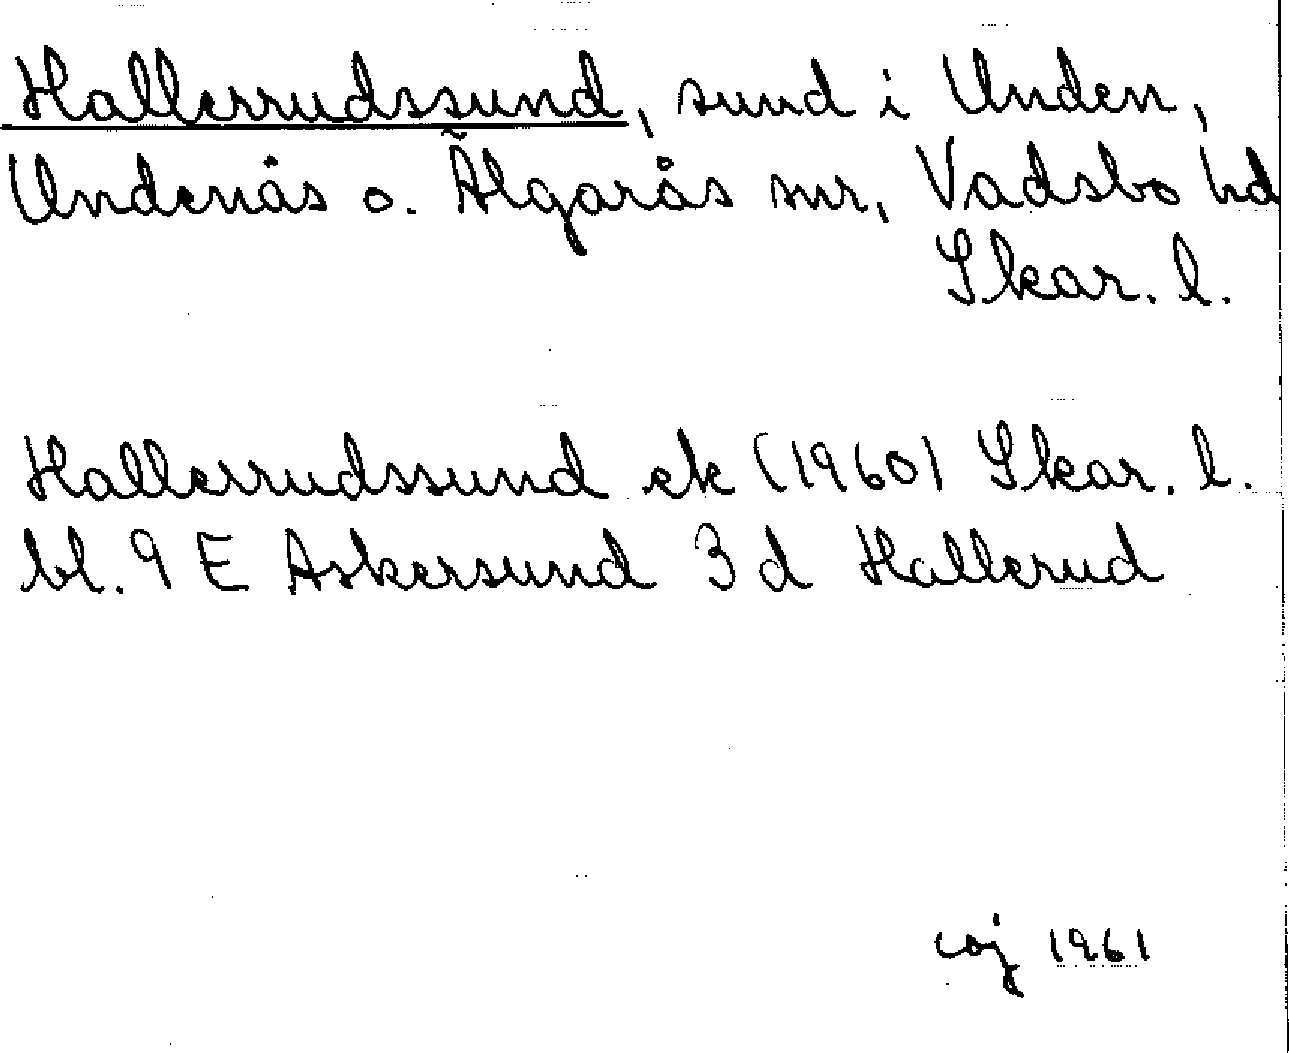 Hallerrudssund, sund i Unden,
Undenäs o. Älgarås snr, Vadsbo hd
Skar. l.
Hallerrudssund ek (1960) Skar. l.
bl. 9 E Askersund 3 d Hallerud
coj 1961